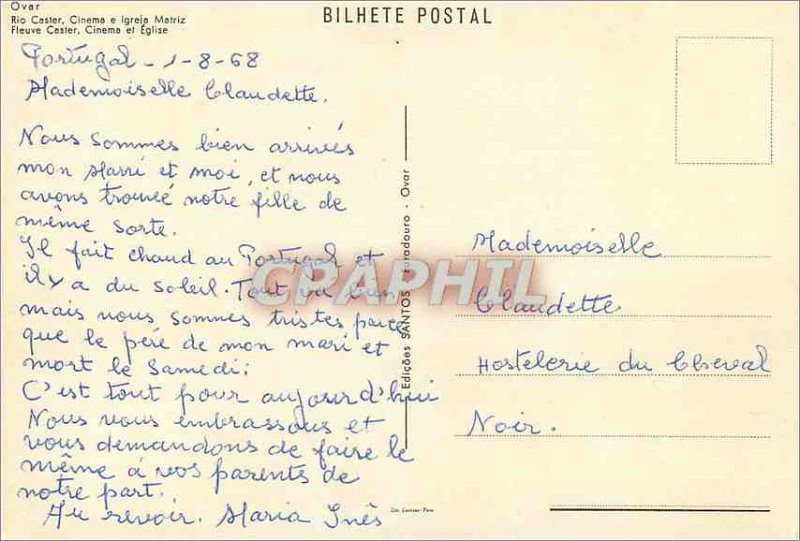 Ovar
Rio Caster, Cinema e Igreja Matriz
Fleuve Caster, Cinema et Église
BILHETE POSTAL
Portugal - 1-8-68
Mademoiselle Claudette.
Nous sommes bien arrivés
mon Marri et moi, et nous
avons trouvé notre fille de
même sorte.
Il fait chaud au Portugal et
il y a du soleil. Tout va bien
mais nous sommes tristes parce
que le pére de mon mari et
mort le Samedi.
C'est tout pour aujourd'hui
Nous vous embrassons et
vous demandons de faire le
même á vos parents de
notre part.
Au revoir. Maria Inês
Edições SANTOS Furadouro - Ovar
CPAPHIL
Mademoiselle
Claudette
Hostelerie du Cheval
Noir.